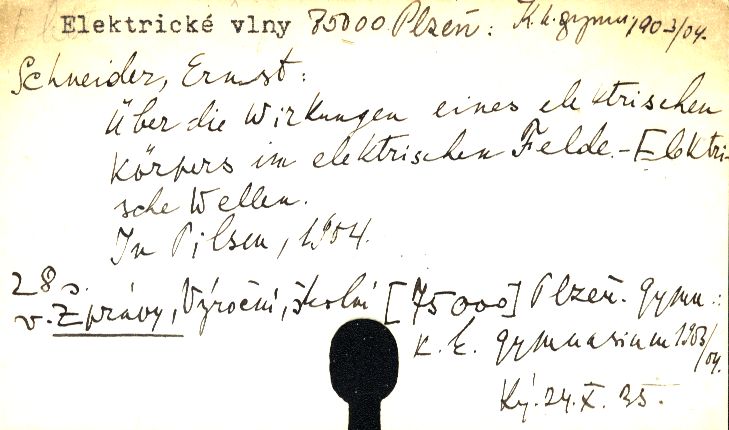 Elektrické vlny 75000 Plzeň: K.k. gymn, 1903/04.
Schneider, Ernst:
Über die Wirkungen eines elektrischen
Körpers im elektrischen Felde. - Elektri-
sche Wellen.
In Pilsen, 1904.
28 s.
v. Zprávy, Výroční, školní [75000] Plzeň. gymn.:
K. k. gymnasium 1903/04.
Ký. 24. X. 35.